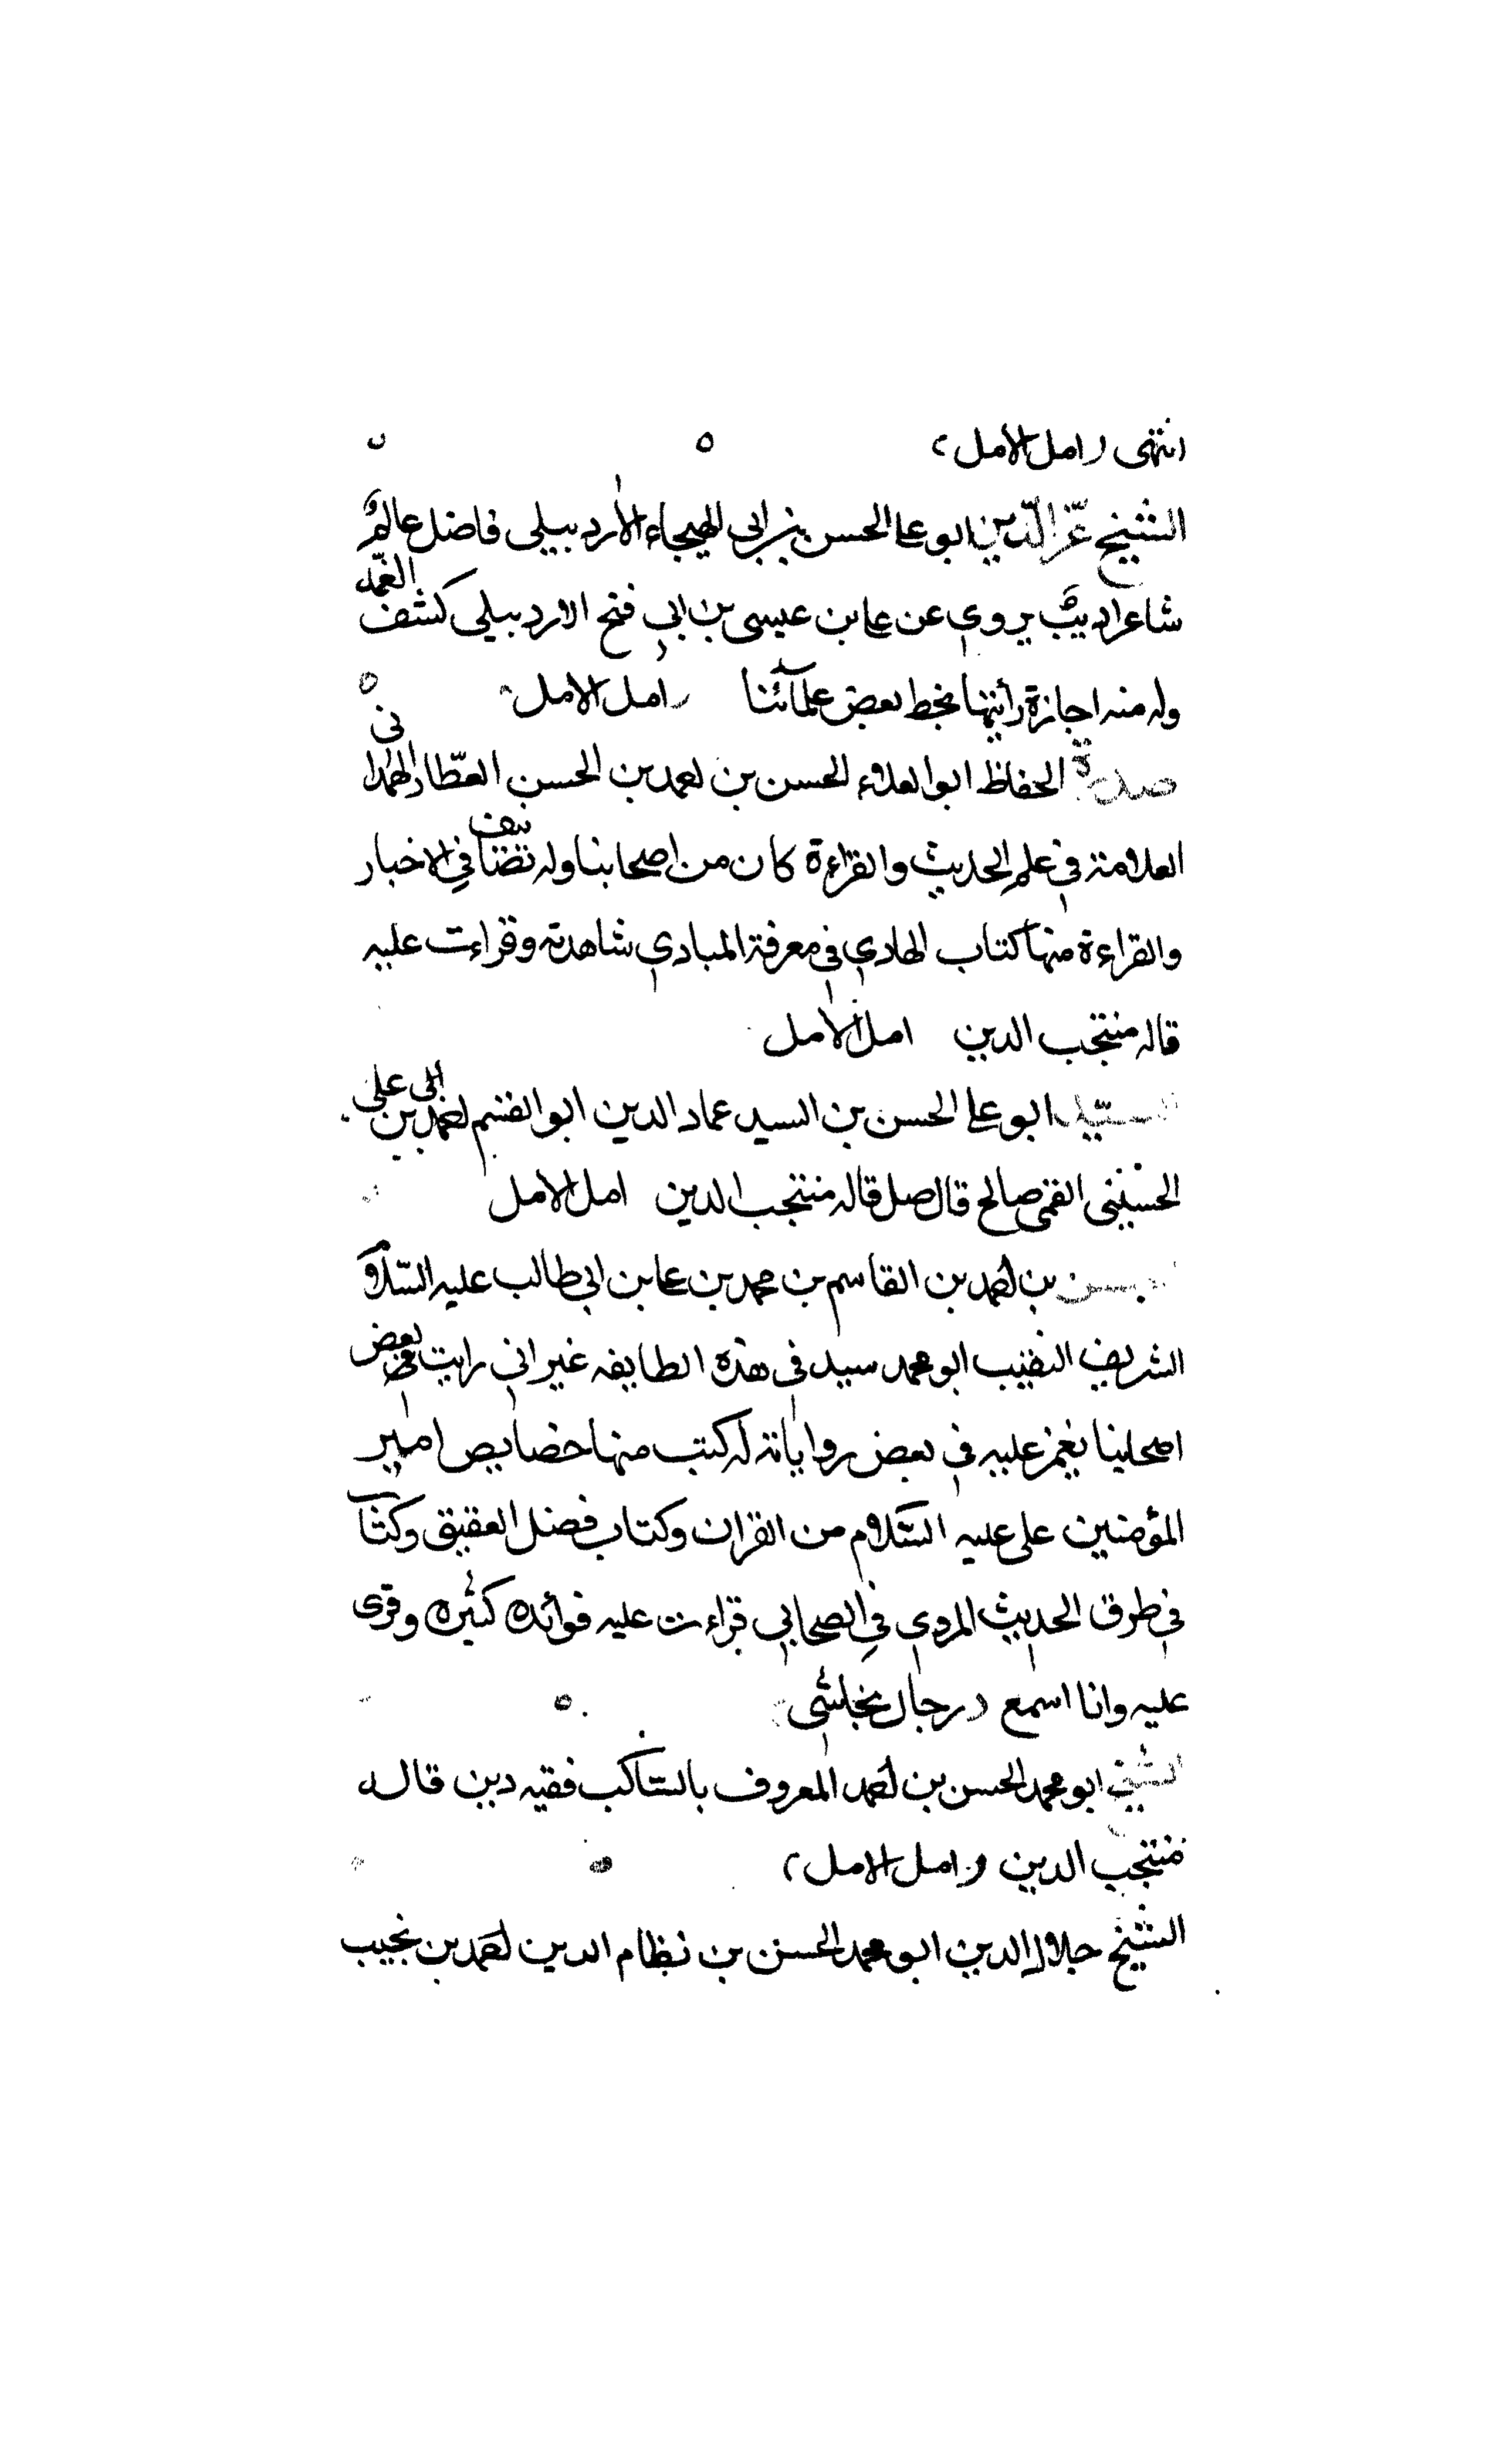 انتهى (امل الامل)
الشيخ عزّ الدّين ابو على الحسن بن ابى الهيجاء الاردبيلى فاضل عالم
شاعر اديب يروى عن على بن عيسى بن ابى فتح الاردبيلى كشف الغمه
وله منه اجازة رأيتها بخط بعض علمآئنا (امل الامل)
صدر الحفاظ ابو العلاء الحسن بن احمد بن الحسن العطّار الهمدانى
العلامة فى علم الحديث والقراءة كان من اصحابنا وله تصانيف فى الاخبار
والقراءة منها كتاب الهادى فى معرفة المبادى شاهدته وقراءت عليه
قاله منتجب الدين امل الامل
السيّد ابو على الحسن بن السيد عماد الدين ابو القسم احمد بن ابى على
الحسينى القمى صالح فاضل قاله منتجب الدين امل الامل
الحسن بن احمد بن القاسم بن محمد بن على بن ابى طالب عليه السّلام
الشريف النقيب ابو محمد سيد فى هذه الطايفه غير انى رايت بعض
اصحابنا يغمز عليه فى بعض رواياته له كتب منها خصايص امير
المؤمنين على عليه السّلام من القران وكتاب فضل العقيق وكتاب
فى طرق الحديث المروى فى الصحابى قراءت عليه فوائده كثيره وقرى
عليه وانا اسمع (رجال نجاشى)
الشيخ ابو محمد الحسن بن احمد المعروف بالسّاكب فقيه دين قاله
منتجب الدين (امل الامل)
الشيخ جلال الدين ابو محمد الحسن بن نظام الدين احمد بن نجيب